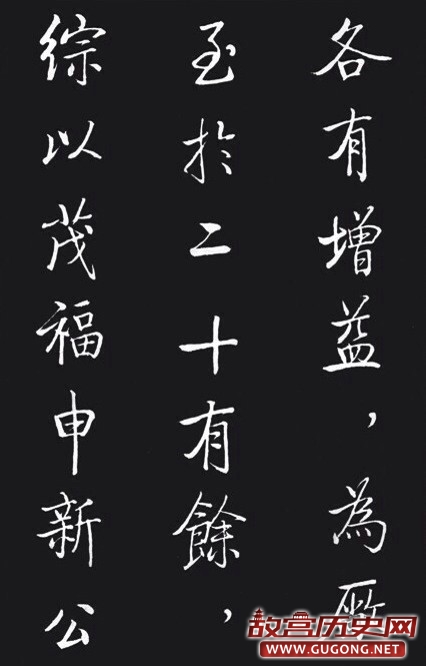 各有增益，為所
至於二十有餘，
綜以茂福申新公
故宫历史网
WWW.GUGONG.NET